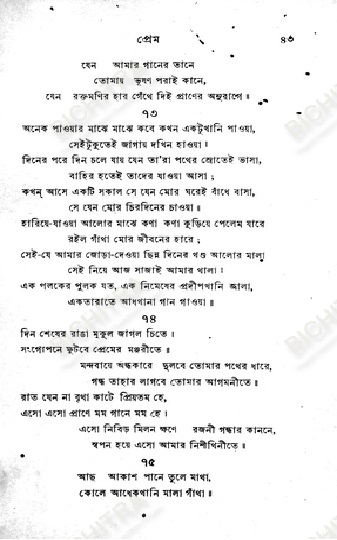 প্রেম ৪৩
যেন আমার গানের তানে
তোমায় ভূষণ পরাই কানে,
যেন রক্তমণির হার গেঁথে দিই প্রাণের অনুরাগে।
৭৩
অনেক পাওয়ার মাঝে মাঝে কবে কখন একটুখানি পাওয়া,
সেইটুকুতেই জাগায় দখিন হাওয়া।
দিনের পরে দিন চলে যায় যেন তা'রা পথের স্রোতেই ভাসা,
বাহির হতেই তাদের যাওয়া আসা;
কখন্ আসে একটি সকাল সে যেন মোর ঘরেই বাঁধে বাসা,
সে যেন মোর চিরদিনের চাওয়া।
হারিয়ে-যাওয়া আলোর মাঝে কণা কণা কুড়িয়ে পেলেম যারে
রইল গাঁথা মোর জীবনের হারে;
সেই-যে আমার জোড়া-দেওয়া ছিন্ন দিনের খণ্ড আলোর মালা
সেই নিয়ে আজ সাজাই আমার থালা।
এক পলকের পুলক যত, এক নিমেষের প্রদীপখানি জ্বালা,
একতারাতে আধখানা গান গাওয়া।
৭৪
দিন শেষের রাঙা মুকুল জাগল চিতে।
সংগোপনে ফুটবে প্রেমের মঞ্জরীতে।
মন্দবায়ে অন্ধকারে দুলবে তোমার পথের ধারে,
গন্ধ তাহার লাগবে তোমার আগমনীতে।
রাত যেন না বৃথা কাটে প্রিয়তম হে,
এসো এসো প্রাণে মম গানে মম হে।
এসো নিবিড় মিলন ক্ষণে রজনী গন্ধার কাননে,
স্বপন হয়ে এসো আমার নিশীথিনীতে।
৭৫
আছ আকাশ পানে তুলে মাথা,
কোলে আধেকখানি মালা গাঁথা।